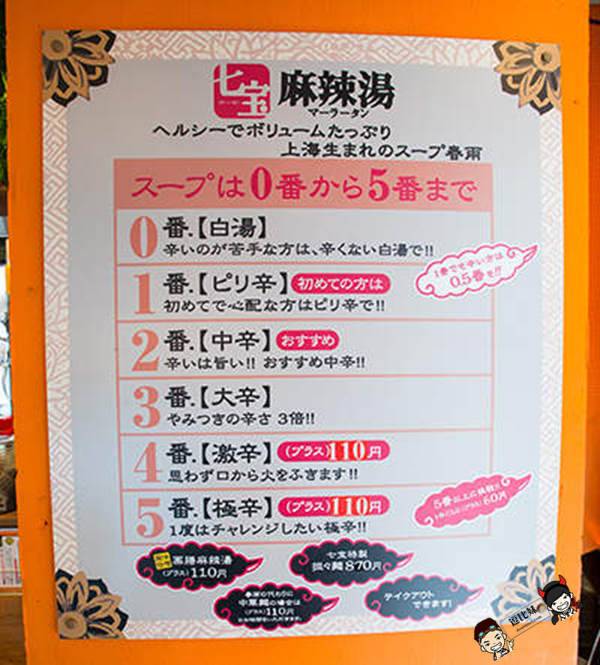 七宝 麻辣湯
マーラータン
ヘルシーでボリュームたっぷり
上海生まれのスープ春雨
スープは0番から5番まで
0番.【白湯】
辛いのが苦手な方は、辛くない白湯で!!
1番でも辛い方は
0.5番を!!
1番.【ピリ辛】 初めての方は
初めてで心配な方はピリ辛で!!
2番.【中辛】 おすすめ
辛いは旨い!! おすすめ中辛!!
3番.【大辛】
やみつきの辛さ 3倍!!
4番.【激辛】 (プラス)110円
思わず口から火をふきます!!
5番.【極辛】 (プラス)110円
1度はチャレンジしたい極辛!!
5番以上に挑戦!!
(プラス)60円
薬膳麻辣湯
(プラス)110円
七宝特製
担々麺870円
春雨の代わりに
中華麺の場合は
(プラス)110円
テイクアウト
できます!